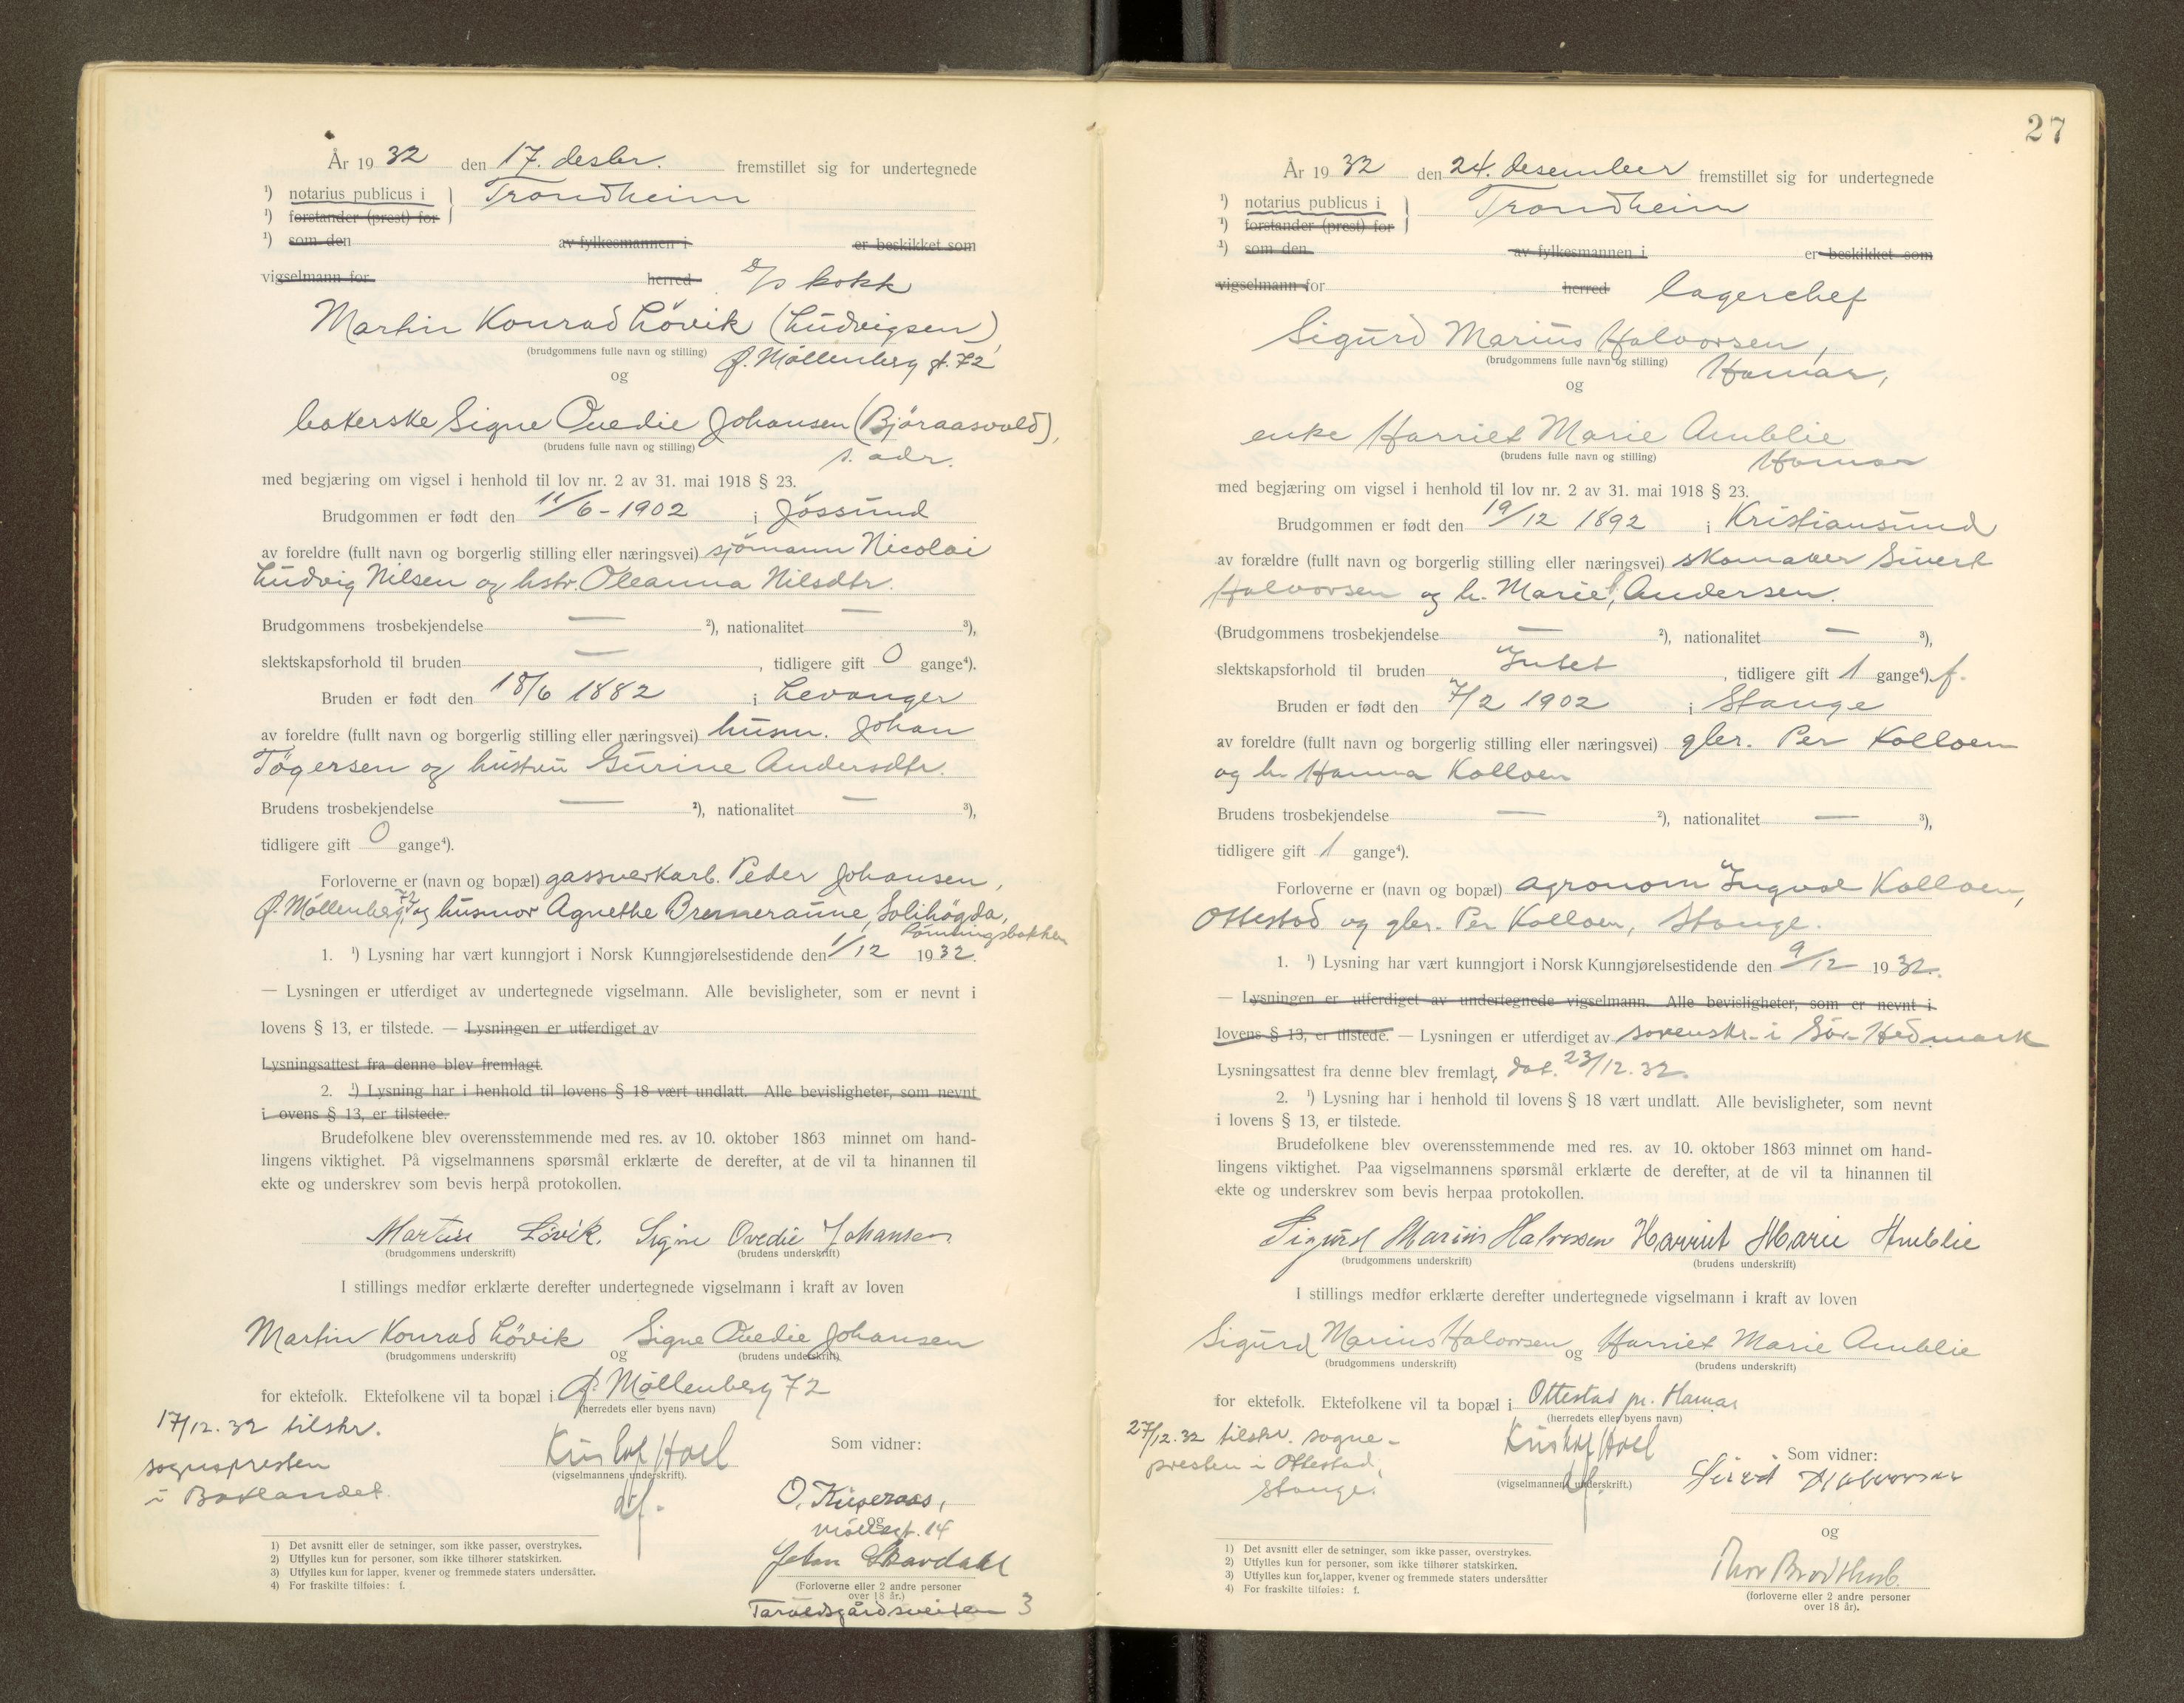 År 1932 den 17. desbr. fremstillet sig for undertegnede
¹) notarius publicus i } Trondheim
¹) forstander (prest) for
¹) som den av fylkesmannen i er beskikket som
vigselmann for herred D/S kokk
Martin Konrad Lövik (Ludvigsen),
(brudgommens fulle navn og stilling) Ø. Möllenberg gt. 72
og
bakerske Signe Ovedie Johansen (Björaasvold),
(brudens fulle navn og stilling) s. adr.
med begjæring om vigsel i henhold til lov nr. 2 av 31. mai 1918 § 23.
Brudgommen er født den 11/6-1902 i Jössund
av foreldre (fullt navn og borgerlig stilling eller næringsvei) sjömann Nicolai
Ludvig Nilsen og hstr. Oleanna Nilsdtr.
Brudgommens trosbekjendelse — ²), nationalitet — ³),
slektskapsforhold til bruden — , tidligere gift 0 gange⁴).
Bruden er født den 18/6 1882 i Levanger
av foreldre (fullt navn og borgerlig stilling eller næringsvei) husm. Johan
Tögersen og hustru Gurine Andersdtr.
Brudens trosbekjendelse — ²), nationalitet — ³),
tidligere gift 0 gange⁴).
Forloverne er (navn og bopæl) gassverkarb. Peder Johansen,
Ø. Möllenberg 72 og husmor Agnethe Bremeraune, Solihögda,
1. ¹) Lysning har vært kunngjort i Norsk Kunngjørelsestidende den 1/12 1932.
— Lysningen er utferdiget av undertegnede vigselmann. Alle bevisligheter, som er nevnt i
lovens § 13, er tilstede. — Lysningen er utferdiget av
Lysningsattest fra denne blev fremlagt.
2. ¹) Lysning har i henhold til lovens § 18 vært undlatt. Alle bevisligheter, som nevnt
i ovens § 13, er tilstede.
Brudefolkene blev overensstemmende med res. av 10. oktober 1863 minnet om hand-
lingens viktighet. På vigselmannens spørsmål erklærte de derefter, at de vil ta hinannen til
ekte og underskrev som bevis herpå protokollen.
Martin Lövik. Signe Ovedie Johansen
(brudgommens underskrift) (brudens underskrift)
I stillings medfør erklærte derefter undertegnede vigselmann i kraft av loven
Martin Konrad Lövik og Signe Ovedie Johansen
(brudgommens underskrift) (brudens underskrift)
for ektefolk. Ektefolkene vil ta bopæl i Ø. Möllenberg 72
(herredets eller byens navn)
17/12.32 tilskr.
sognepresten
i Baklandet.
Kristof Hoel
(vigselmannens underskrift).
Som vidner:
og
Möllegt. 14
John Skavdahl
(Forloverne eller 2 andre personer
over 18 år.)
Taraldsgårdsveiten 3
1) Det avsnitt eller de setninger, som ikke passer, overstrykes.
2) Utfylles kun for personer, som ikke tilhører statskirken.
3) Utfylles kun for lapper, kvener og fremmede staters undersåtter.
4) For fraskilte tilføies: f.
27
År 1932 den 24. desember fremstillet sig for undertegnede
¹) notarius publicus i } Trondheim
¹) forstander (prest) for
¹) som den av fylkesmannen i er beskikket som
vigselmann for herred lagerchef
Sigurd Marius Halvorsen,
(brudgommens fulle navn og stilling) Hamar,
og
enke Harriet Marie Amblie
(brudens fulle navn og stilling) Hamar
med begjæring om vigsel i henhold til lov nr. 2 av 31. mai 1918 § 23.
Brudgommen er født den 19/12 1892 i Kristiansund
av forældre (fullt navn og borgerlig stilling eller næringsvei) skomaker Sivert
Halvorsen og h. Marie, Andersen.
(Brudgommens trosbekjendelse — ²), nationalitet — ³),
slektskapsforhold til bruden Intet , tidligere gift 1 gange⁴). f.
Bruden er født den 7/2 1902 i Stange
av foreldre (fullt navn og borgerlig stilling eller næringsvei) gbr. Per Kolloen
og h. Hanna Kolloen
Brudens trosbekjendelse — ²), nationalitet — ³),
tidligere gift 1 gange⁴).
Forloverne er (navn og bopæl) agronom Ingval Kolloen,
Ottestad og gbr. Per Kolloen, Stange.
1. ¹) Lysning har vært kunngjort i Norsk Kunngjørelsestidende den 9/12 1932.
— Lysningen er utferdiget av undertegnede vigselmann. Alle bevisligheter, som er nevnt i
lovens § 13, er tilstede. — Lysningen er utferdiget av sorenskr. i Sör-Hedmark
Lysningsattest fra denne blev fremlagt, dat. 23/12.32.
2. ¹) Lysning har i henhold til lovens § 18 vært undlatt. Alle bevisligheter, som nevnt
i lovens § 13, er tilstede.
Brudefolkene blev overensstemmende med res. av 10. oktober 1863 minnet om hand-
lingens viktighet. Paa vigselmannens spørsmål erklærte de derefter, at de vil ta hinannen til
ekte og underskrev som bevis herpaa protokollen.
Sigurd Marius Halvorsen Harriet Marie Amblie
(brudgommens underskrift) (brudens underskrift)
I stillings medfør erklærte derefter undertegnede vigselmann i kraft av loven
Sigurd Marius Halvorsen og Harriet Marie Amblie
(brudgommens underskrift) (brudens underskrift)
for ektefolk. Ektefolkene vil ta bopæl i Ottestad pr. Hamar
(herredets eller byens navn)
27/12.32 tilskr. sogne-
presten i Ottestad,
Stange.
Kristof Hoel
(vigselmannens underskrift.)
Som vidner:
Sivert Halvorsen
og
(forloverne eller 2 andre personer
over 18 år).
1) Det avsnitt eller de setninger, som ikke passer, overstrykes.
2) Utfylles kun for personer, som ikke tilhører statskirken.
3) Utfylles kun for lapper, kvener og fremmede staters undersåtter
4) For fraskilte tilføies: f.